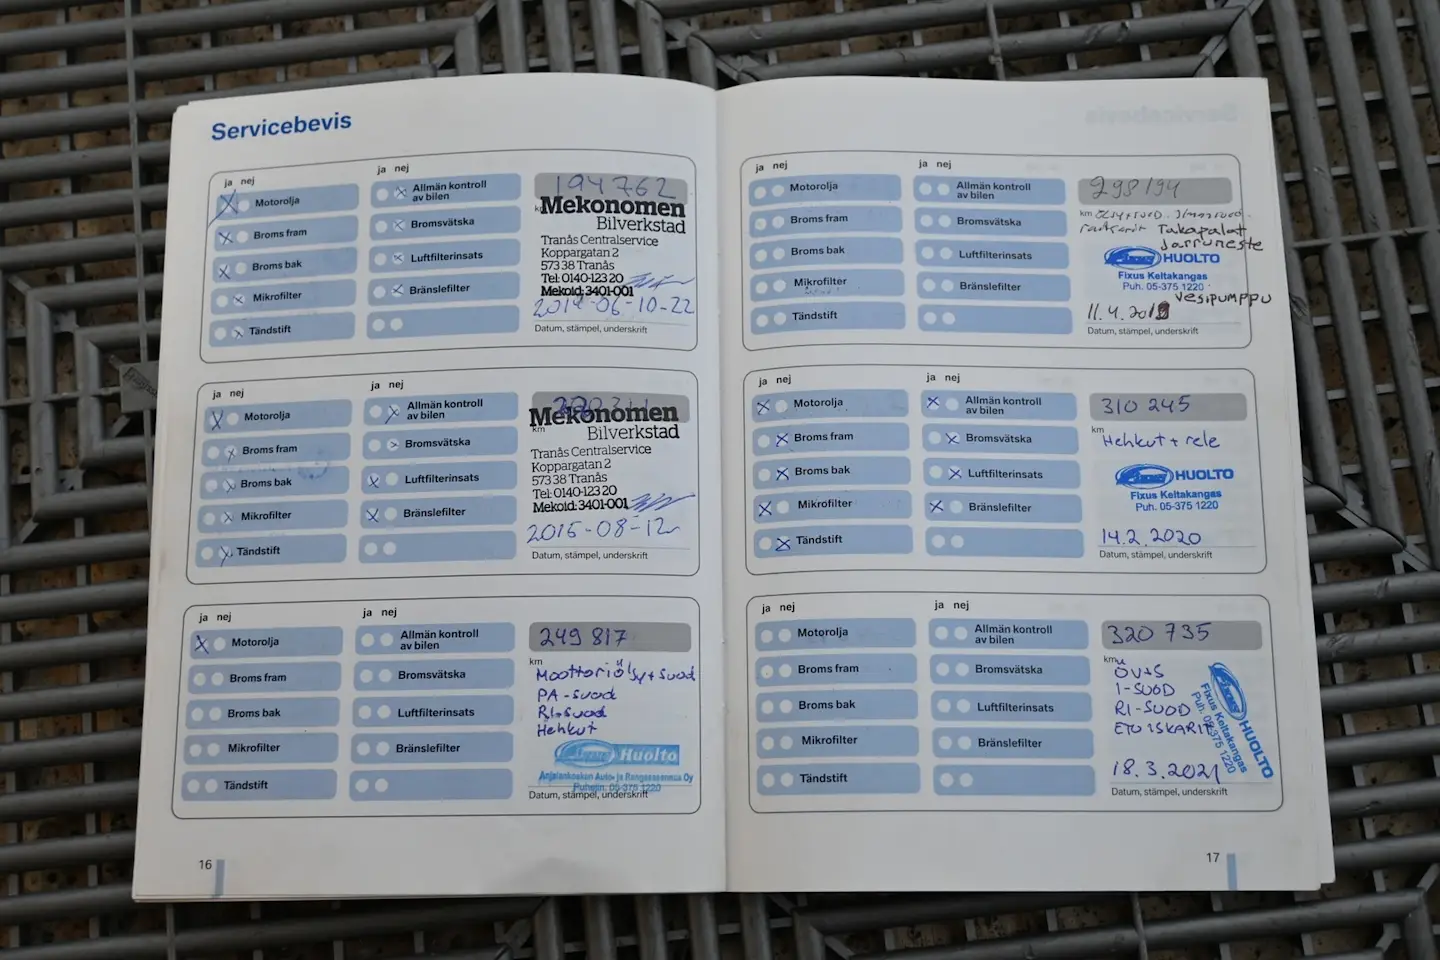 Servicebevis
ja nej
Motorolja
Broms fram
Broms bak
Mikrofilter
Tändstift
ja nej
Allmän kontroll
av bilen
Bromsvätska
Luftfilterinsats
Bränslefilter
194762
km
Mekonomen
Bilverkstad
Tranås Centralservice
Koppargatan 2
573 38 Tranås
Tel: 0140-123 20
Mekoid: 3401-001
Datum, stämpel, underskrift
ja nej
Motorolja
Broms fram
Broms bak
Mikrofilter
Tändstift
ja nej
Allmän kontroll
av bilen
Bromsvätska
Luftfilterinsats
Bränslefilter
km
Mekonomen
Bilverkstad
Tranås Centralservice
Koppargatan 2
573 38 Tranås
Tel: 0140-123 20
Mekoid: 3401-001
2015-08-12
Datum, stämpel, underskrift
ja nej
Motorolja
Broms fram
Broms bak
Mikrofilter
Tändstift
ja nej
Allmän kontroll
av bilen
Bromsvätska
Luftfilterinsats
Bränslefilter
249 817
km
Moottoriöljy+suod
PA-suod
RI-suod
Hehkut
Huolto
Anjalankosken Auto- ja Rengasasennus Oy
Puhelin. 05-375 1220
Datum, stämpel, underskrift
16
ja nej
Motorolja
Broms fram
Broms bak
Mikrofilter
Tändstift
ja nej
Allmän kontroll
av bilen
Bromsvätska
Luftfilterinsats
Bränslefilter
298194
km
Takapalat
Jarruneste
HUOLTO
Fixus Keltakangas
Puh. 05-375 1220
Vesipumppu
Datum, stämpel, underskrift
ja nej
Motorolja
Broms fram
Broms bak
Mikrofilter
Tändstift
ja nej
Allmän kontroll
av bilen
Bromsvätska
Luftfilterinsats
Bränslefilter
310 245
km
Hehkut + rele
HUOLTO
Fixus Keltakangas
Puh. 05-375 1220
14.2.2020
Datum, stämpel, underskrift
ja nej
Motorolja
Broms fram
Broms bak
Mikrofilter
Tändstift
ja nej
Allmän kontroll
av bilen
Bromsvätska
Luftfilterinsats
Bränslefilter
320 735
km
ÖV+S
I-SUOD
RI-SUOD
ETUISKARIT
HUOLTO
Fixus Keltakangas
Puh. 05-375 1220
18.3.2021
Datum, stämpel, underskrift
17